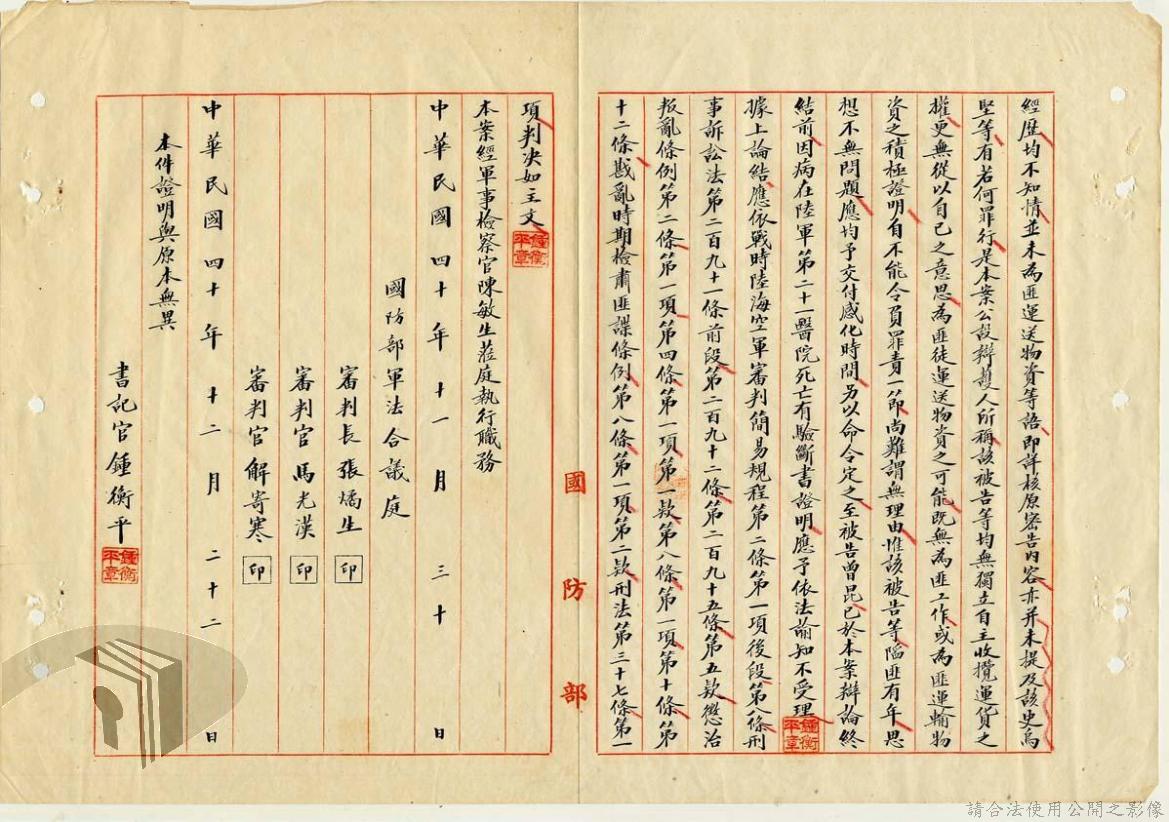 經歷均不知情並未為匪運送物資等語即詳核原密告内容亦并未提及該史為
堅等有若何罪行是本案公設辯護人所稱該被告等均無獨立自主收攬運貨之
權更無從以自己之意思為匪徒運送物資之可能既無為匪工作或為匪運輸物
資之積極證明自不能令負罪責一節尚難謂無理由惟該被告等陷匪有年思
想不無問題應均予交付感化時間另以命令定之至被告曾昆已於本案辯論終
結前因病在陸軍第二十一醫院死亡有驗斷書證明應予依法諭知不受理
據上論結應依戰時陸海空軍審判簡易規程第二條第一項後段第八條刑
事訴訟法第二百九十一條前段第二百九十二條第二百九十五條第五款懲治
叛亂條例第二條第一項第四條第一項第一款第八條第一項第十條第
十二條戡亂時期檢肅匪諜條例第八條第一項第二款刑法第三十七條第一
國防部
項判決如主文
本案經軍事檢察官陳敏生蒞庭執行職務
中華民國四十年十一月三十日
國防部軍法合議庭
審判長張燏生 印
審判官馬光漢 印
審判官解寄寒 印
中華民國四十年十二月二十二日
本件證明與原本無異
書記官鍾衡平
鍾衡平章
請合法使用公開之影像